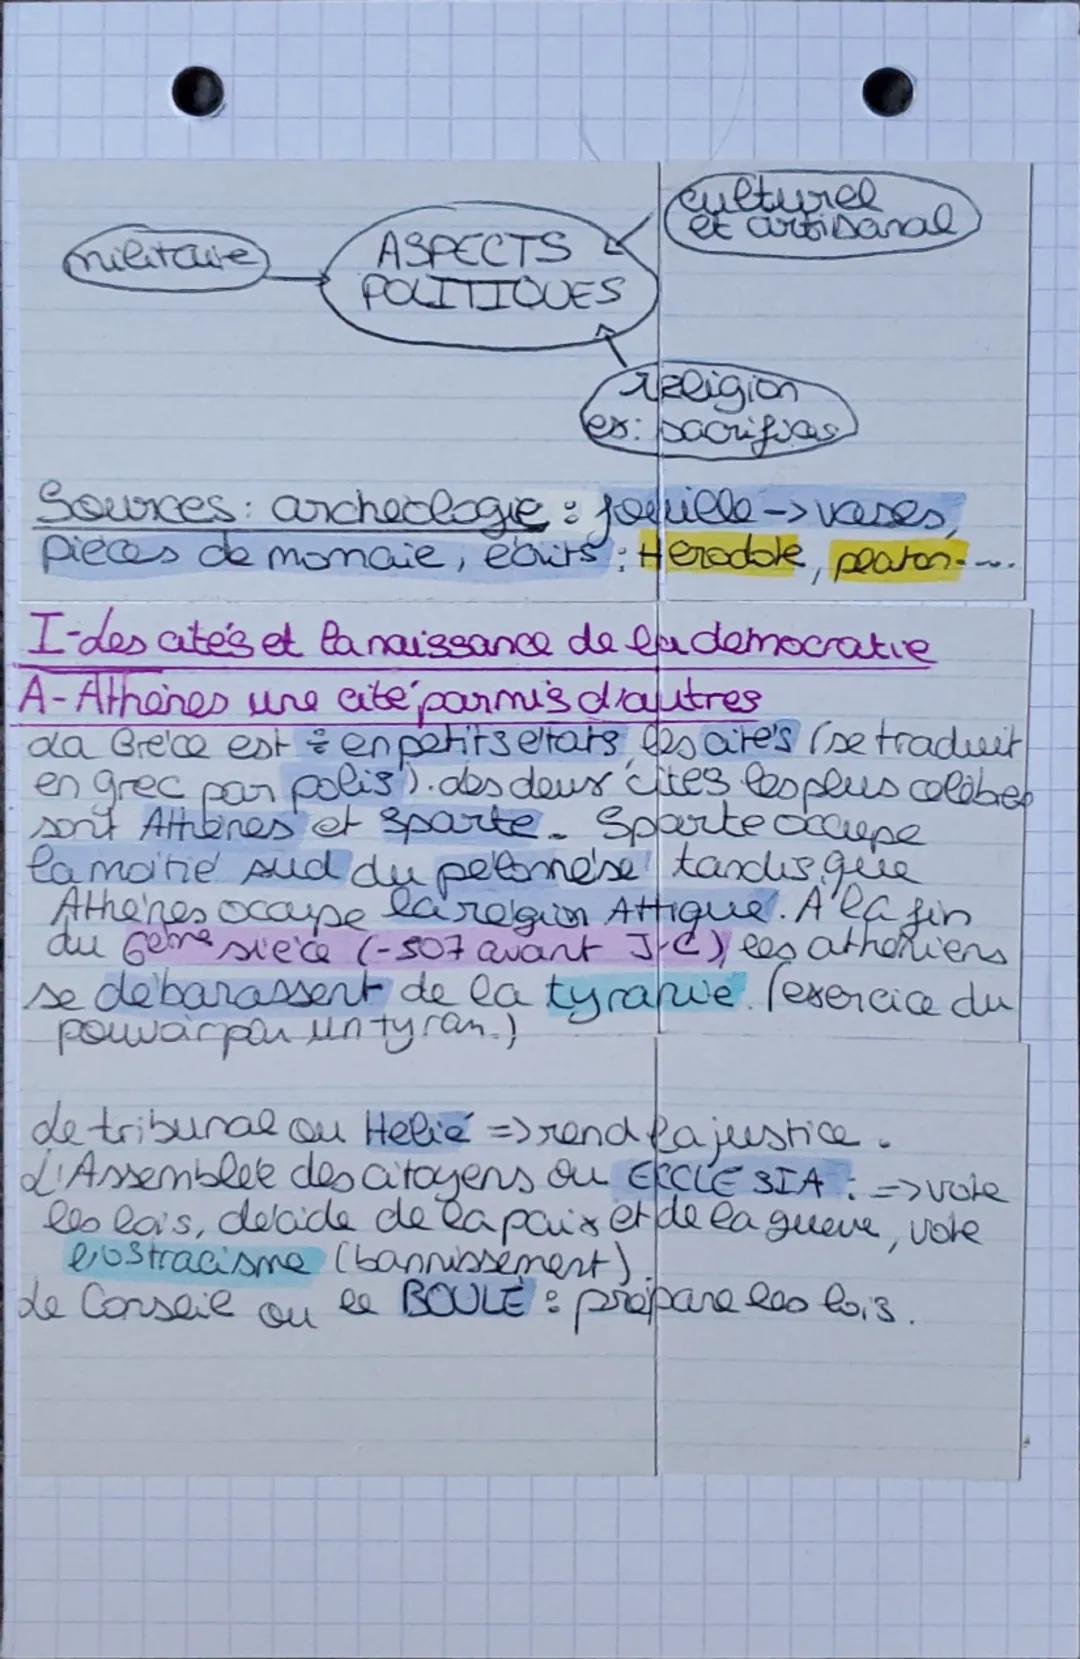 militaire
ASPECTS
POLITIQUES
culturel
et artisanal
religion
ex: sacrifices
Sources: archeologie : fouille -> vases,
pièces de monnaie, écrits : Herodote, platon....
I-Les cités et la naissance de la democratie
A-Athènes une cité parmis d'autres
La Grèce est ÷ en petits états, les cités (se traduit
en grec par polis). Les deux cités les plus celèbres
sont Athènes et Sparte. Sparte occupe
la moitié sud du péloponnèse tandis que
Athènes occupe la région Attique. A la fin
du 6eme siècle (-507 avant J-C), les athéniens
se débarassent de la tyrannie. (exercice du
pouvoir par un tyran.)
Le tribunal ou Helié => rend la justice.
L'Assemblée des citoyens ou ECCLESIA : => vote
les lois, décide de la paix et de la guerre, vote
l'ostracisme (bannissement).
Le Conseil ou la BOULÉ : prépare les lois.